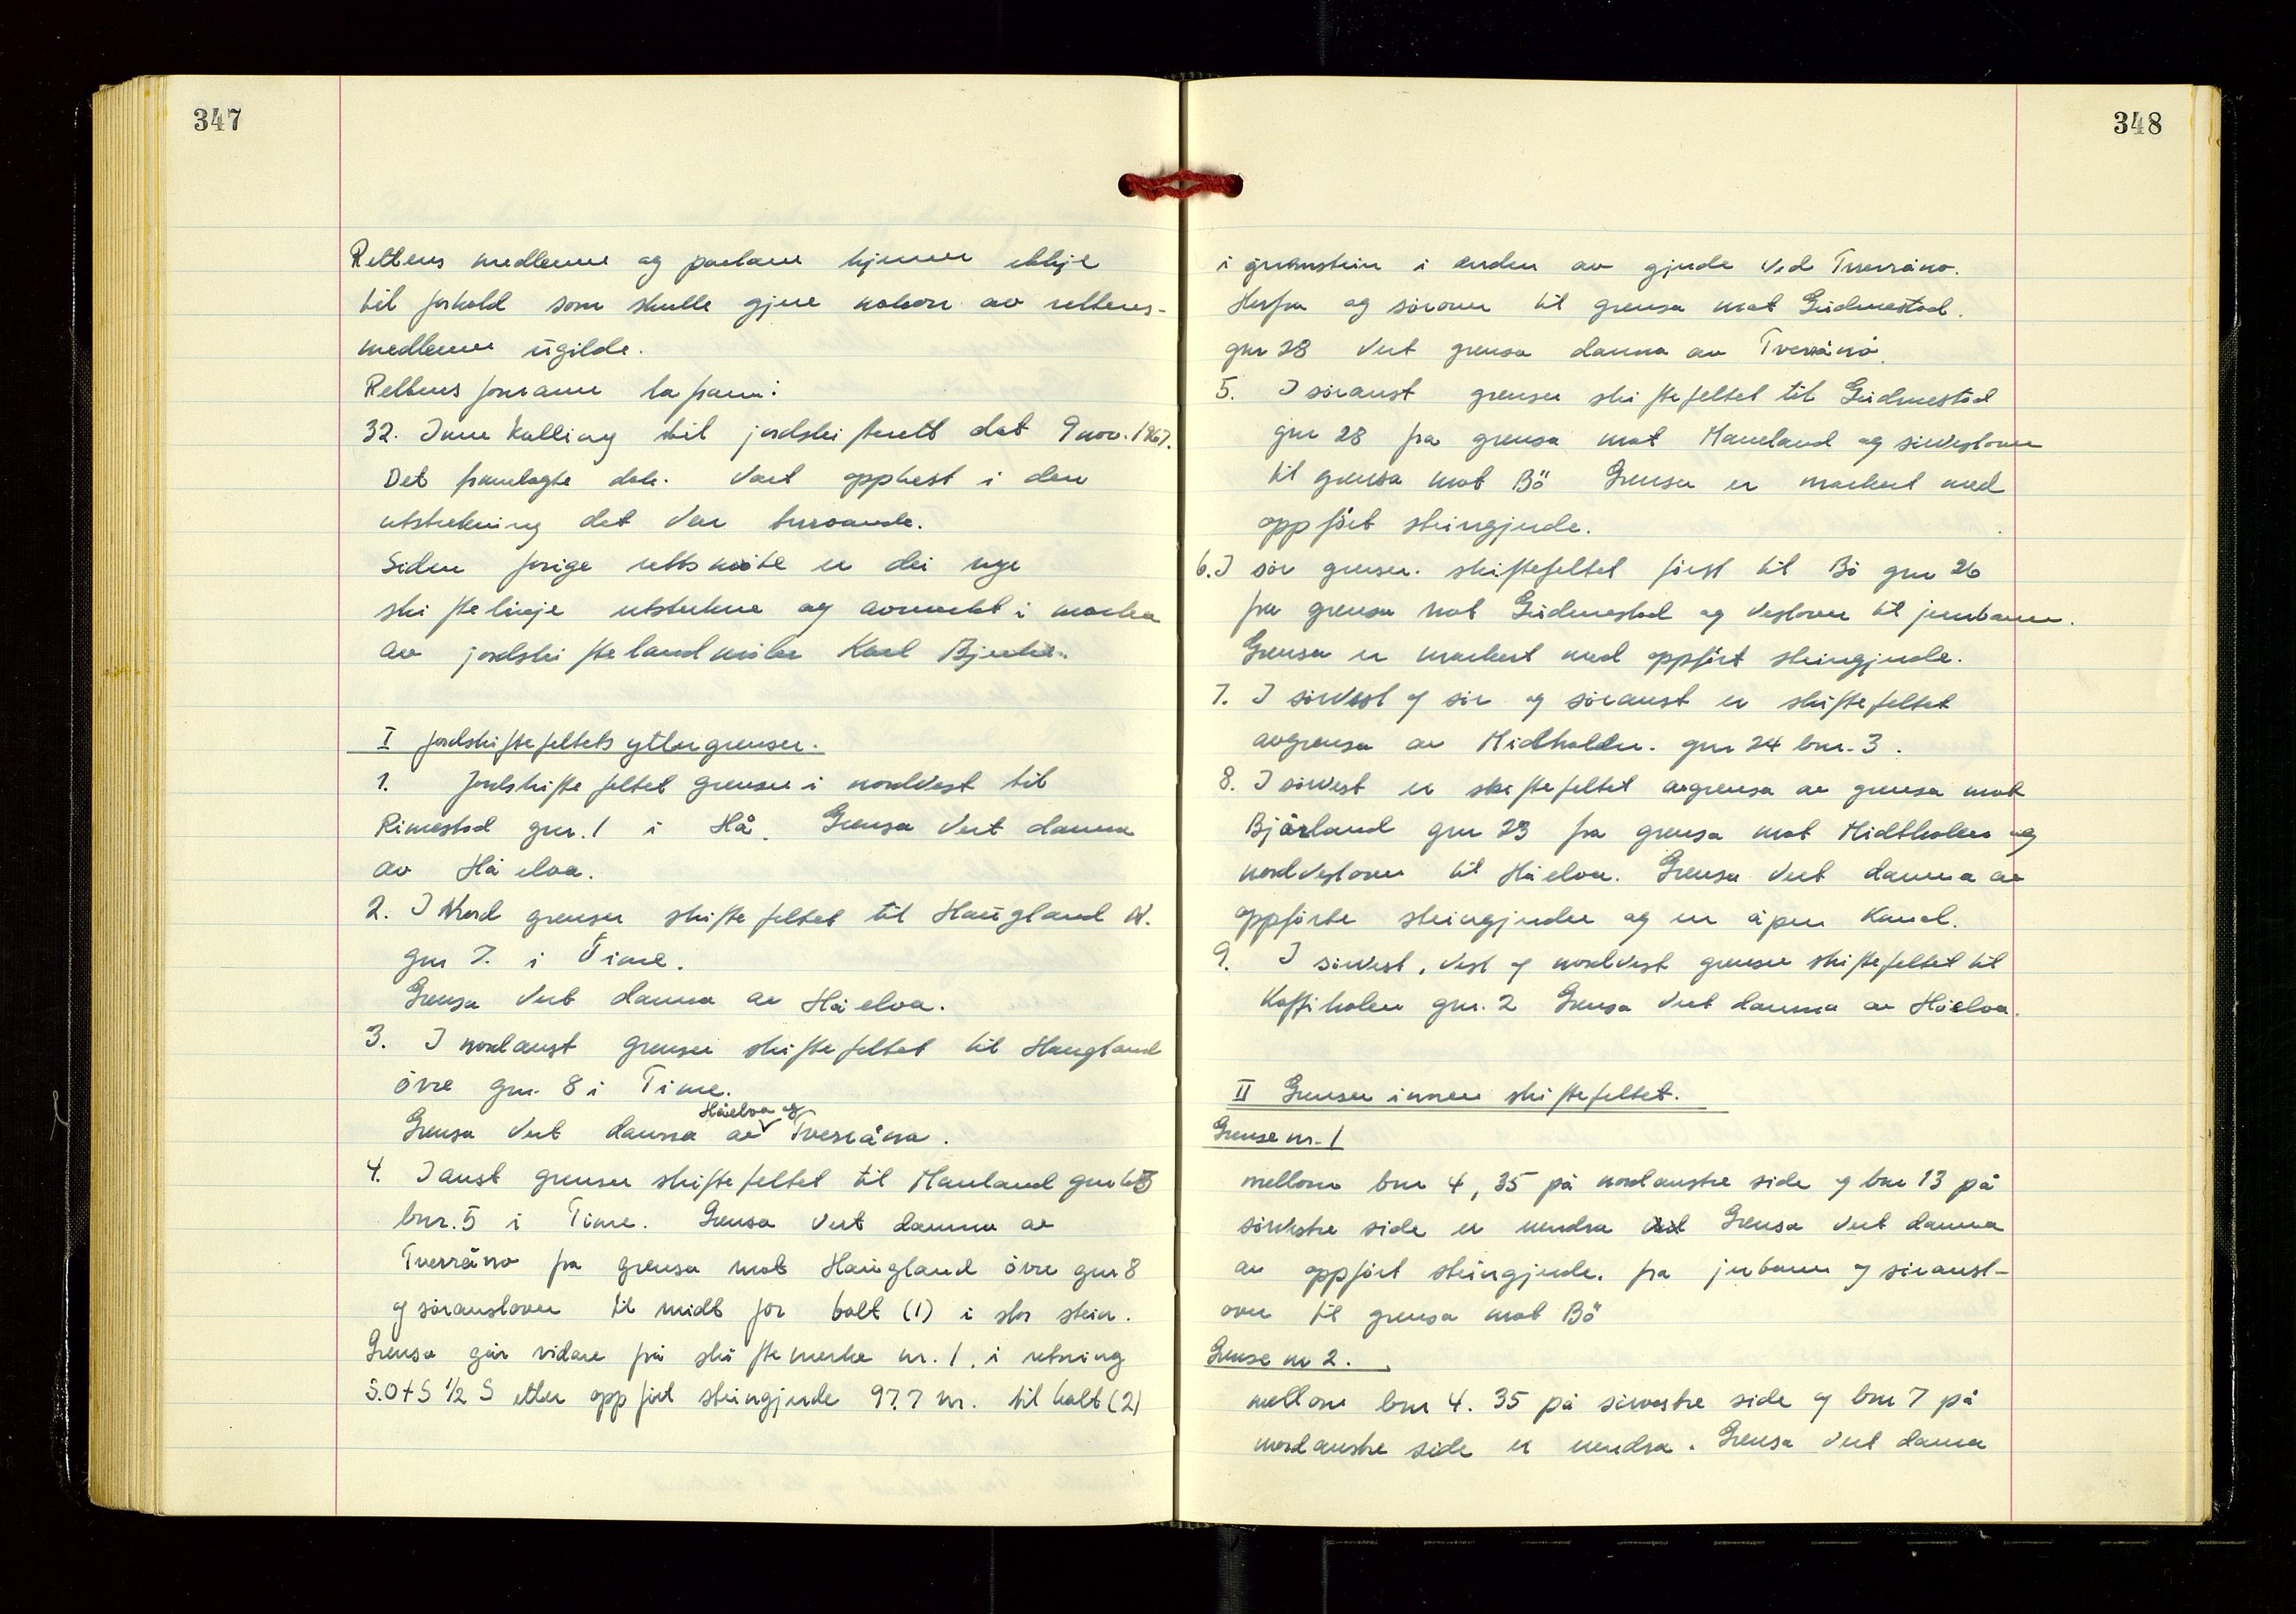 347
Rettens medlemer og partane kjenner ikkje
til forhold som skulle gjere nokon av rettens-
medlemer ugilde.
Rettens formann la fram:
32. Innkalling til jordskifterett dat 9 nov. 1967.
Det framlagte dok. vart opplest i den
utstrekning det var turvande.
Siden forige rettsmöte er dei nye
skiftelinje utstukne og avmerkt i marka
av jordskiftelandmåler Karl Bjerke.
I Jordskiftefeltets yttergrenser.
1. Jordskiftefeltet grenser i nordvest til
Rimestad gnr. 1 i Hå. Grensa vert danna
av Håelva.
2. I Nord grenser skiftefeltet til Haugland N.
gnr 7. i Time.
Grensa vert danna av Håelva.
3. I nordaust grenser skiftefeltet til Haugland
övre gnr. 8 i Time.
Grensa vert danna av Håelva og Tverråna.
4. I aust grenser skiftefeltet til Haneland gnr
bnr. 5 i Time. Grensa vert danna av
Tverråna fra grensa mot Haugland övre gnr 8
og söraustover til midt for bolt (1) i stor stein.
Grensa går vidare frå skiftemerke nr. 1, i retning
S.O+S 1/2 S etter oppfört steingjerde 97.7 m. til bolt (2)
348
i grunnstein i enden av gjerde ved Tverråna.
Herfra og sörover til grensa mot Gudmestad.
gnr 28 vert grensa danna av Tverråna.
5. I söraust grenser skiftefeltet til Gudmestad
gnr 28 fra grensa mot Haneland og sörvestover
til grensa mot Bö Grensa er markert med
oppfört steingjerde.
6. I sör grenser skiftefeltet först til Bö gnr 26
fra grensa mot Gudmestad og vestover til jernbanen.
Grensa er markert med oppfört steingjerde.
7. I sörvest og sör og söraust er skiftefeltet
avgrensa av Midtholen. gnr 24 bnr. 3.
8. I sörvest er skiftefeltet avgrensa av grensa mot
Bjårland gnr 23 fra grensa mot Midtholen og
nordvestover til Håelva. Grensa vert danna av
oppförte steingjerder og en åpen kanal.
9. I sörvest, vest og nordvest grenser skiftefeltet til
Kaffiholen gnr. 2 Grensa vert danna av Håelva.
II Grenser innen skiftefeltet.
Grense nr. 1
mellom bnr 4, 35 på nordaustre side og bnr 13 på
sörvestre side er uendra Grensa vert danna
av oppfört steingjerde. fra jernbanen og söraust-
over til grensa mot Bö
Grense nr 2.
mellom bnr 4. 35 på sörvestre side og bnr 7 på
nordaustre side er uendra. Grensa vert danna